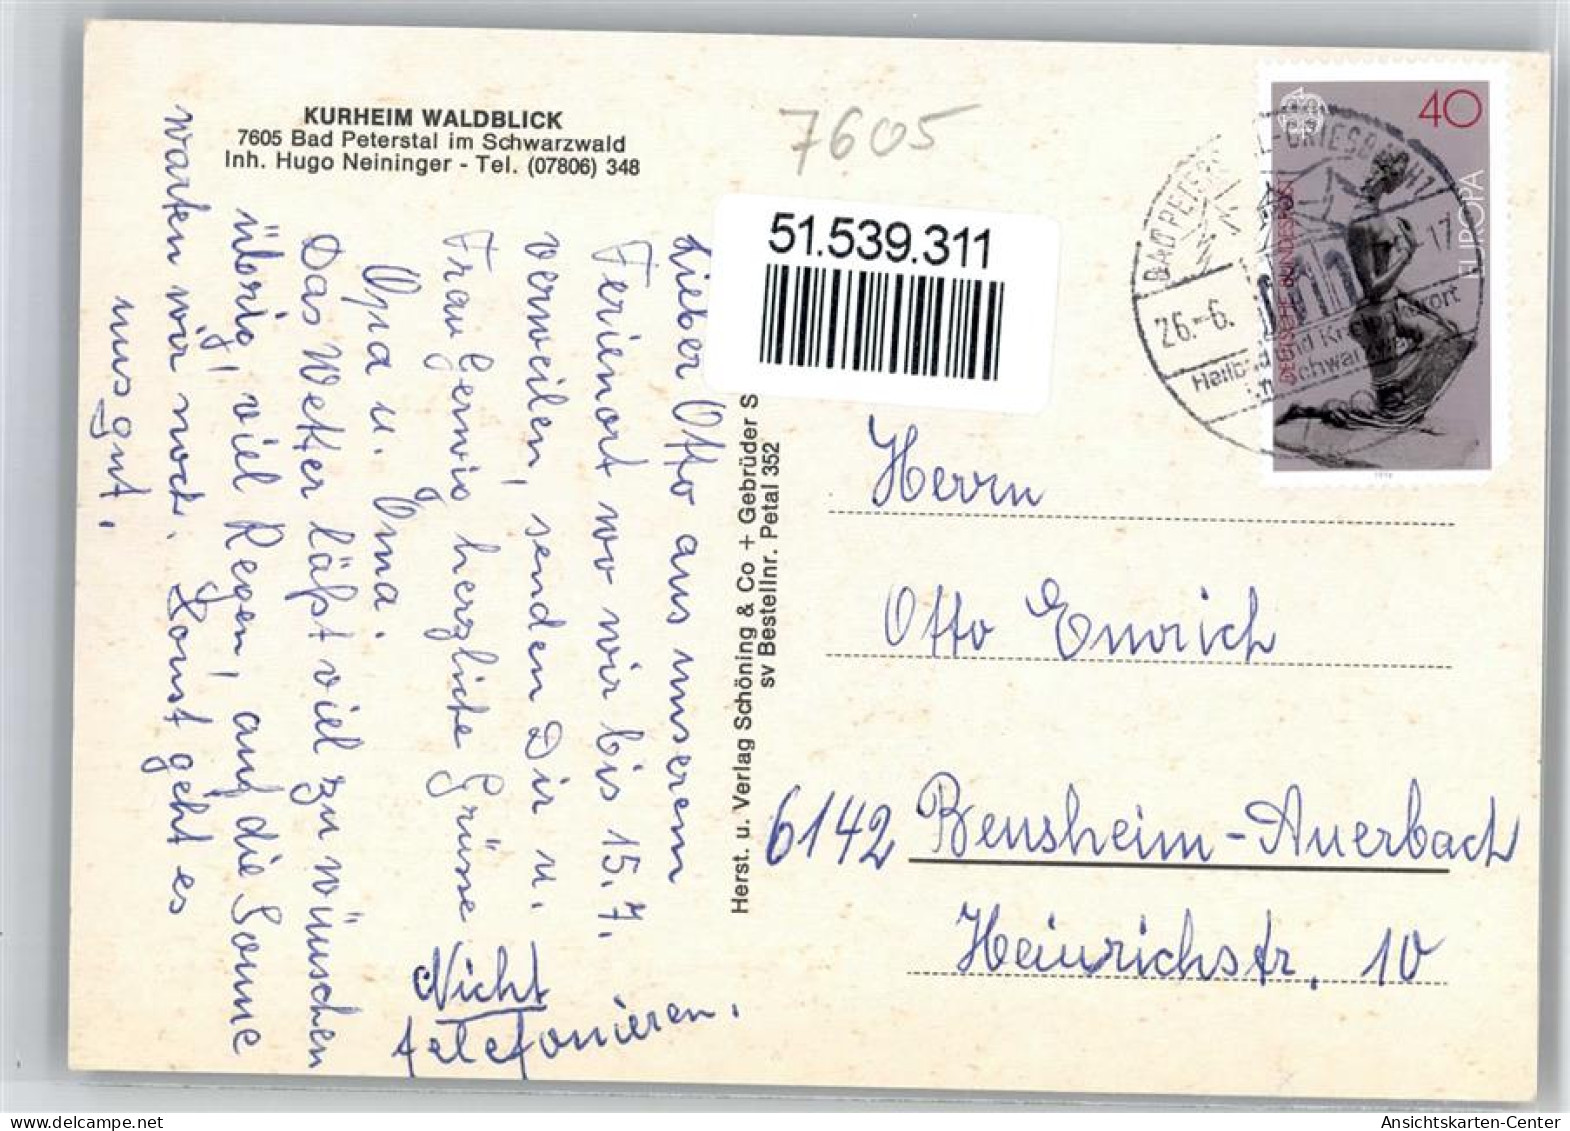 KURHEIM WALDBLICK
7605 Bad Peterstal im Schwarzwald
Inh. Hugo Neininger - Tel. (07806) 348
7605
51.539.311
40
EUROPA
DEUTSCHE BUNDESPOST
BAD PETERS L-GRIESBACH 1
26.-6. 17
Heilbad und Kneippkurort
im Schwarzwald
1974
Lieber Otto aus unserem
Ferienort wo wir bis 15.7.
verweilen, senden Dir u.
Frau Gerwig herzliche Grüße
Opa u. Oma.
Das Wetter läßt viel zu wünschen
übrig, viel Regen, auf die Sonne
warten wir noch. Sonst geht es
uns gut.
Nicht
telefonieren.
Herst. u. Verlag Schöning & Co + Gebrüder S
sv Bestellnr. Petal 352
Herrn
Otto Emrich
6142 Bensheim-Auerbach
Heinrichstr. 10
Ansichtskarten-Center